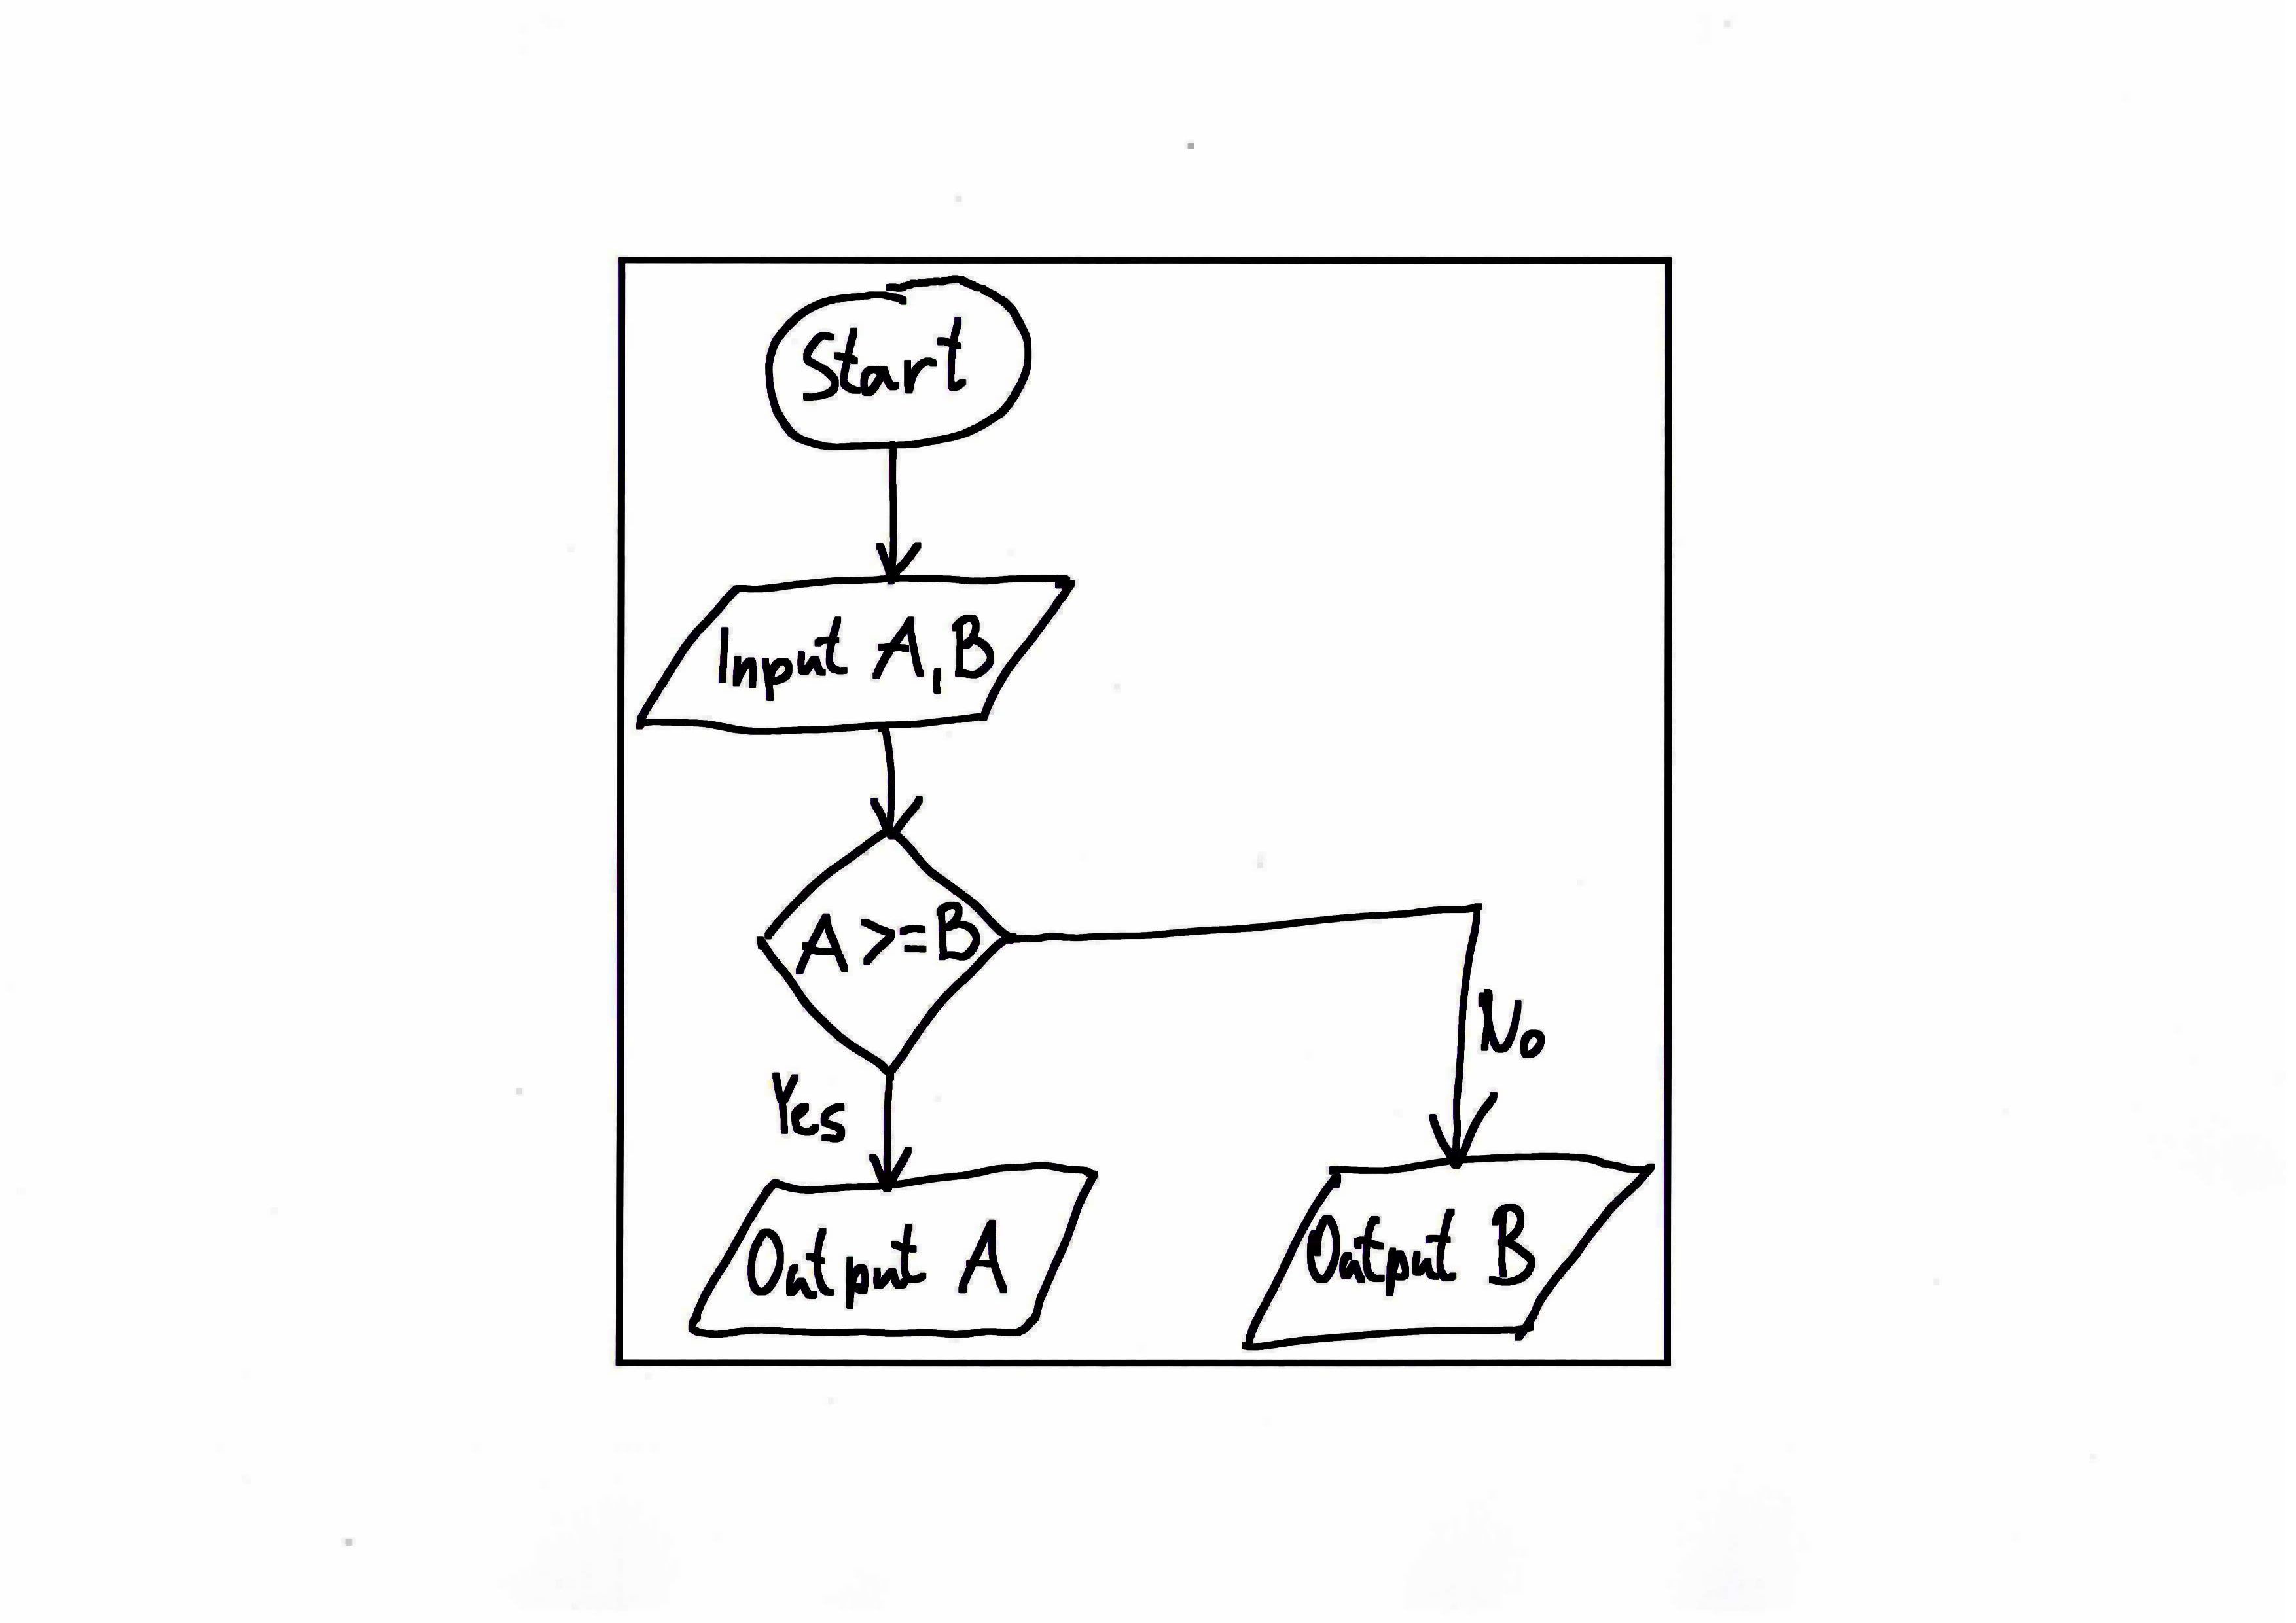 Start
Input A,B
A >=B
Yes
No
Output A
Output B